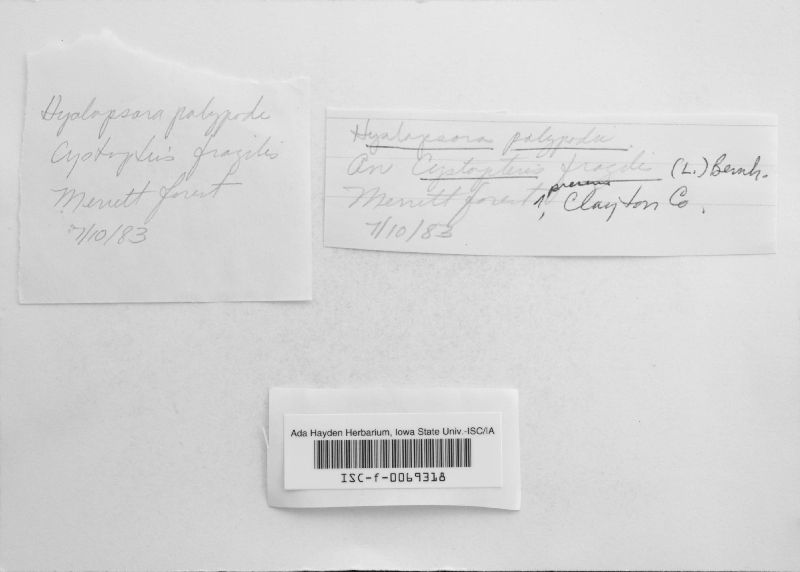 Hyalopsora polypodii
Cystopteris fragilis
Merrett forest
7/10/83
Hyalopsora polypodii
On Cystopteris fragilis (L.) Bernh.
Merrett forest, Clayton Co.
7/10/83
Ada Hayden Herbarium, Iowa State Univ.-ISC/IA
ISC-f-0069318